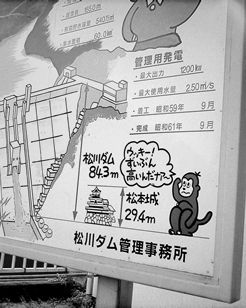 155.0m
540.5m
60.0km
管理用発電
・最大出力 1200kw
・最大使用水量 2.50m³/s
・着工 昭和59年 9月
・完成 昭和61年 9月
ウッキー!
ずいぶん
高いんだナア〜
松川ダム
84.3m
松本城
29.4m
松川ダム管理事務所